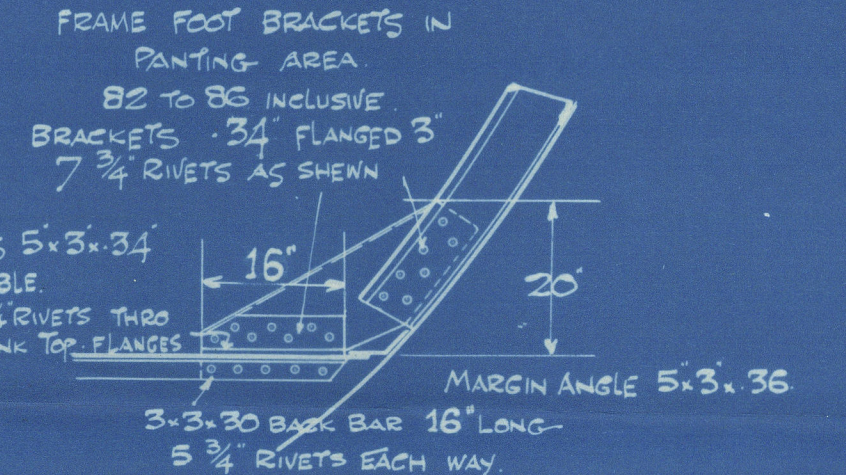 FRAME FOOT BRACKETS IN
PANTING AREA.
82 TO 86 INCLUSIVE.
BRACKETS .34" FLANGED 3"
7 3/4" RIVETS AS SHEWN
5"x3"x.34"
16"
20"
RIVETS THRO
TOP FLANGES
MARGIN ANGLE 5"x3"x.36.
3x3x30 BACK BAR 16" LONG
5 3/4" RIVETS EACH WAY.